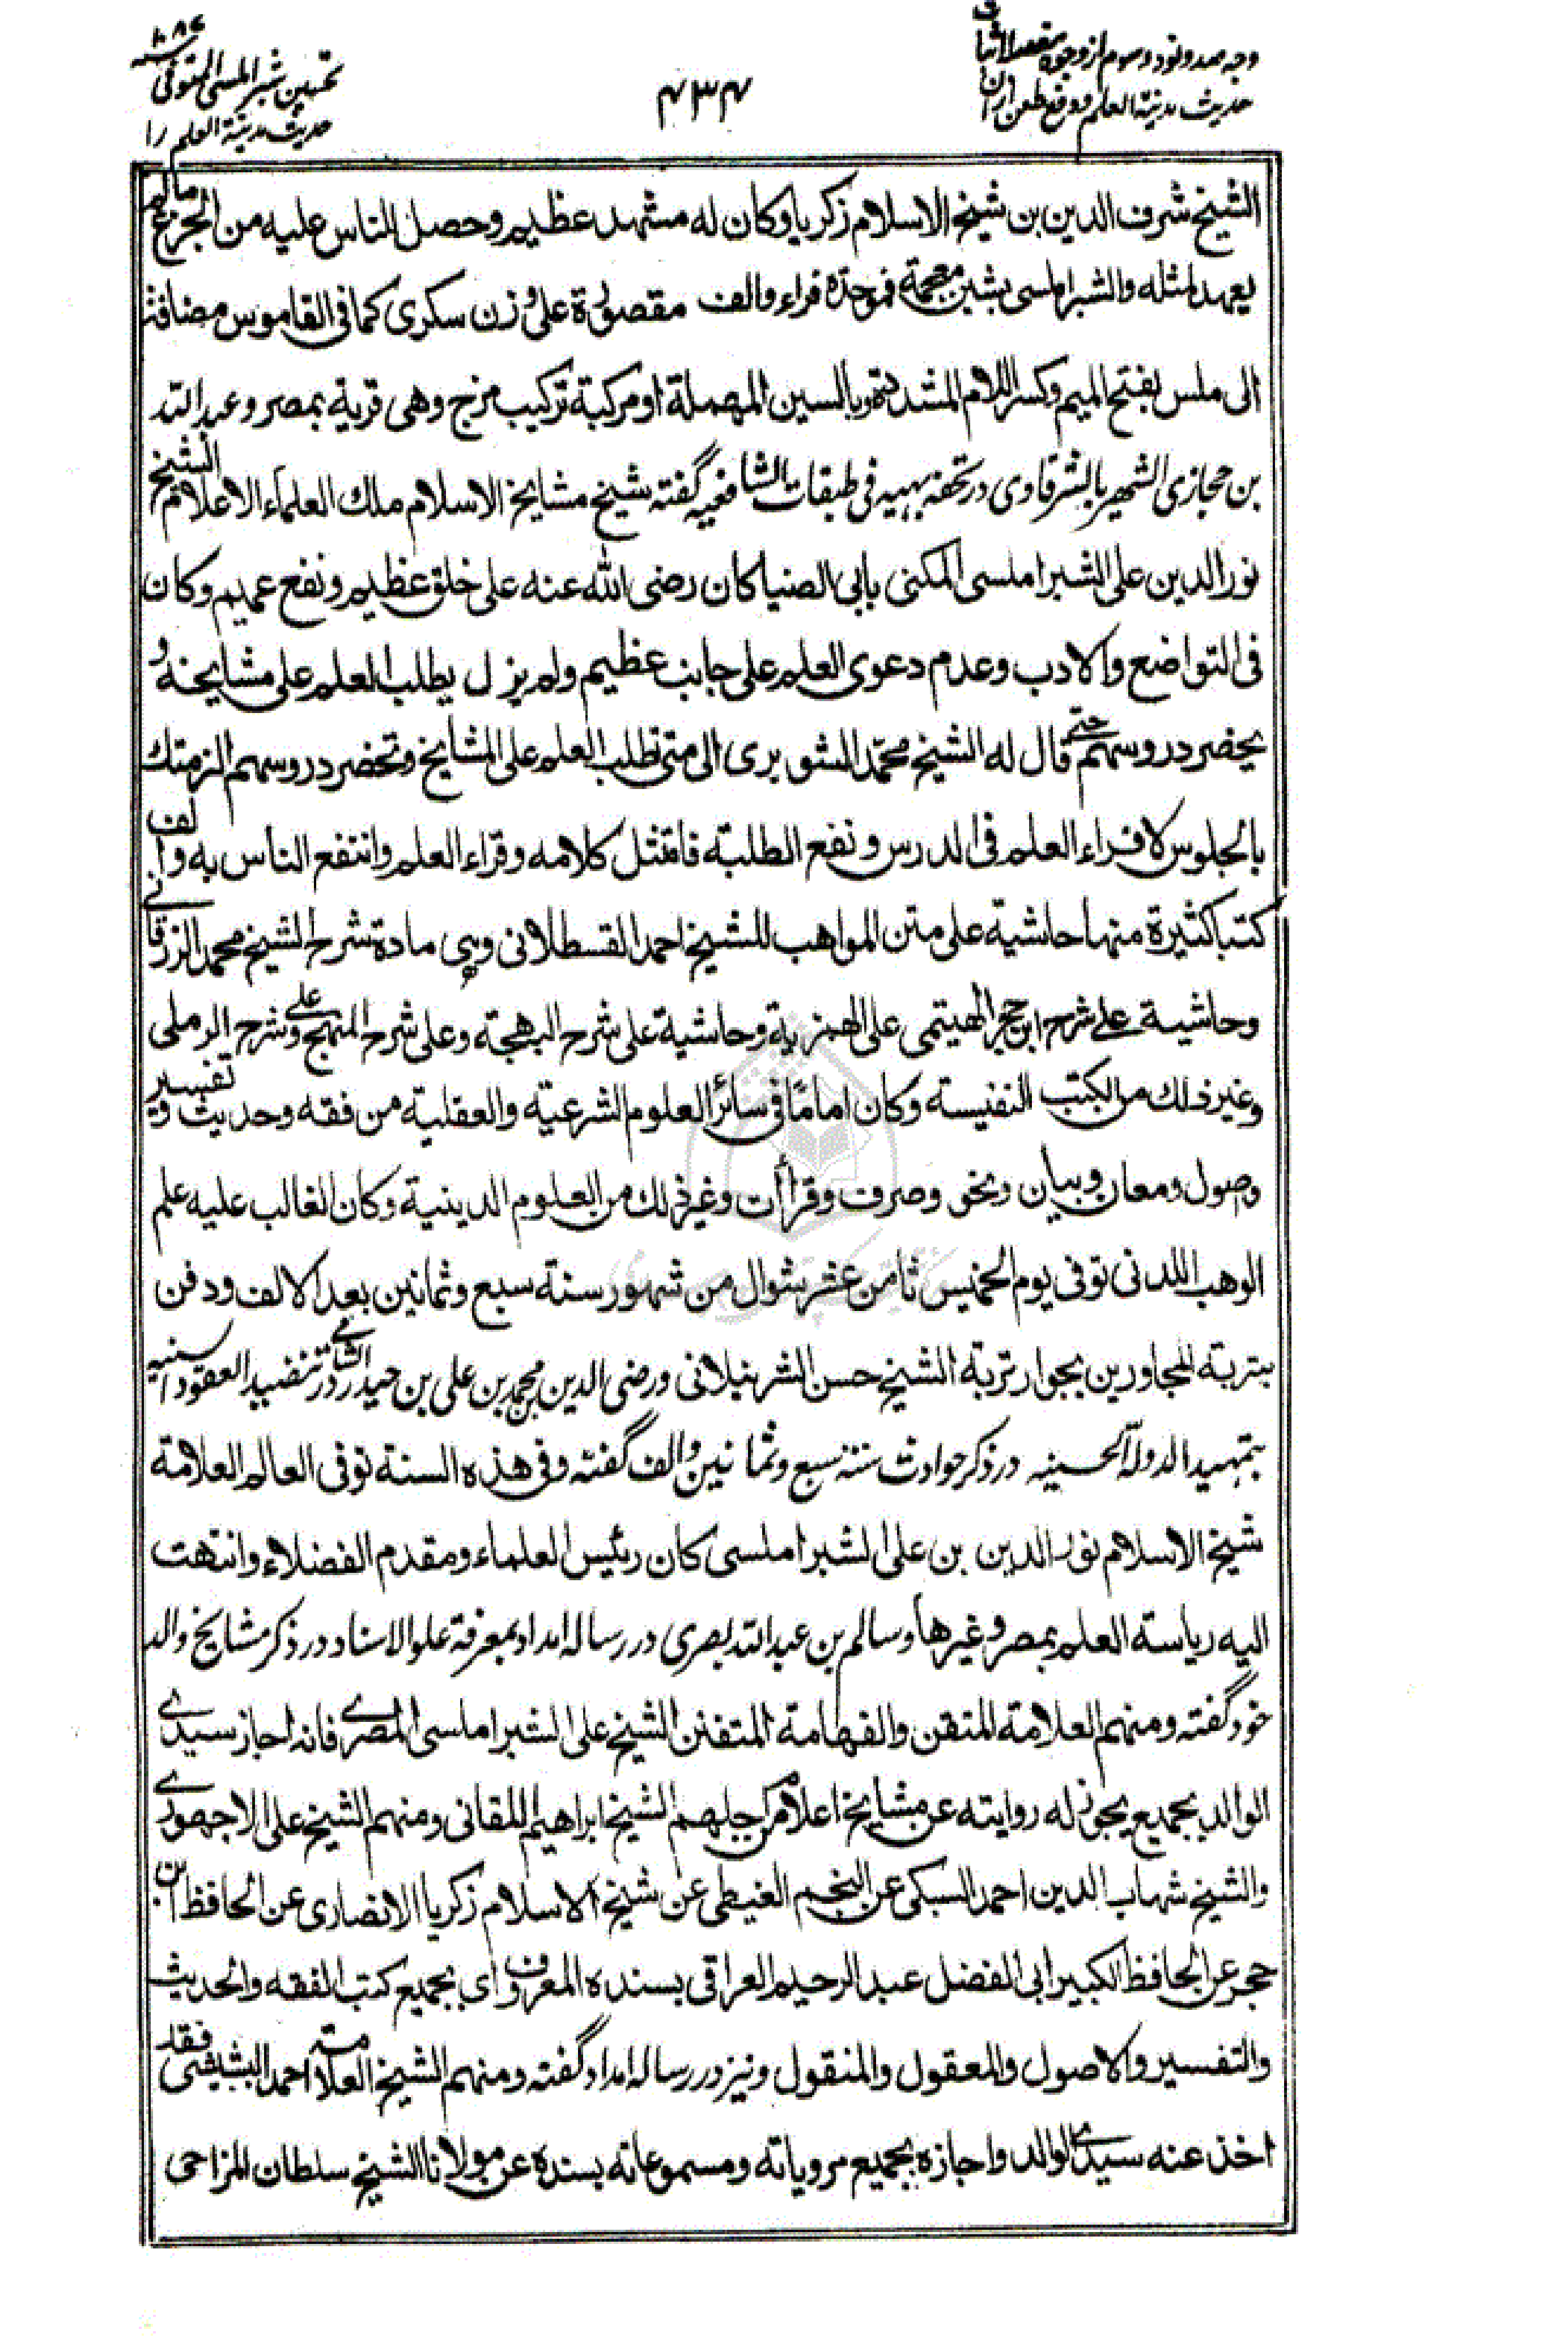 وجه صد و نود و سوم از وجوه مقصد اثبات
حدیث مدینة العلم و دفع طعن ازان
۴۳۴
۱۰۸۷
تحسین شبراملسی المتوفی سنه
حدیث مدینة العلم را
الشیخ شرف الدین بن شیخ الاسلام زکریا وکان له مشهد عظیم وحصل للناس علیه من الجزع مالم
یعهد لمثله والشبراملسی بشین معجمة فموحدة فراء والف مقصورة علی وزن سکری کما فی القاموس مضافة
الی ملس بفتح المیم وکسر اللام المشددة وبالسین المهملة او مرکبة ترکیب مزج وهی قریة بمصر و عبد الله
بن حجازی الشهیر بالشرقاوی در تحفه بهیه فی طبقات الشافعیه گفته شیخ مشایخ الاسلام ملك العلماء الاعلام الشیخ
نور الدین علی الشبراملسی المکنی بابی الضیا کان رضی الله عنه علی خلق عظیم ونفع عمیم وکان
فی التواضع والادب وعدم دعوی العلم علی جانب عظیم ولم یزل یطلب العلم علی مشایخه و
یحضر دروسهم حتی قال له الشیخ محمد الشوبری الی متی تطلب العلم علی المشایخ وتحضر دروسهم الزمتك
بالجلوس لاقراء العلم فی الدرس ونفع الطلبة فامتثل کلامه وقراء العلم وانتفع الناس به والف
کتبا کثیرة منها حاشیة علی متن المواهب للشیخ احمد القسطلانی وهی مادة شرح الشیخ محمد الزرقانی
وحاشیة علی شرح ابن حجر الهیتمی علی الهمزیة وحاشیة علی شرح البهجة وعلی شرح المنهج وعلی شرح الرملی
وغیر ذلك من الکتب النفیسة وکان اماما فی سائر العلوم الشرعیة والعقلیة من فقه وحدیث وتفسیر
وصول ومعان وبیان ونحو وصرف وقرأات وغیر ذلك من العلوم الدینیة وکان الغالب علیه علم
الوهب اللدنی توفی یوم الخمیس ثامن عشر شوال من شهور سنة سبع وثمانین بعد الالف ودفن
بتربة المجاورین بجوار تربة الشیخ حسن الشرنبلانی و رضی الدین محمد بن علی بن حیدر الشامی در تنضید العقود السنیه
بتمهید الدولة الحسینیه در ذکر حوادث سنه سبع وثمانین والف گفته وفی هذه السنة توفی العالم العلامة
شیخ الاسلام نور الدین بن علی الشبراملسی کان رئیس العلماء ومقدم الفضلاء وانتهت
الیه ریاسة العلم بمصر وغیرها و سالم بن عبد الله بصری در رساله امداد بمعرفة علو الاسناد در ذکر مشایخ والد
خود گفته ومنهم العلامة المتقن والفهامة المتفنن الشیخ علی الشبراملسی المصری فانه اجاز سیدی
الوالد بجمیع یجوز له روایته عن مشایخ اعلام من اجلهم الشیخ ابراهیم اللقانی ومنهم الشیخ علی الاجهوری
والشیخ شهاب الدین احمد السبکی عن النجم الغیطی عن شیخ الاسلام زکریا الانصاری عن الحافظ ابن
حجر عن الحافظ الکبیر ابی الفضل عبد الرحیم العراقی بسنده المعروف ای بجمیع کتب الفقه والحدیث
والتفسیر والاصول والمعقول والمنقول و نیز در رساله امداد گفته ومنهم الشیخ العلامة احمد البشبیشی فقد
اخذ عنه سیدی الوالد واجازه بجمیع مرویاته ومسموعاته بسنده عن مولانا الشیخ سلطان المزاحی